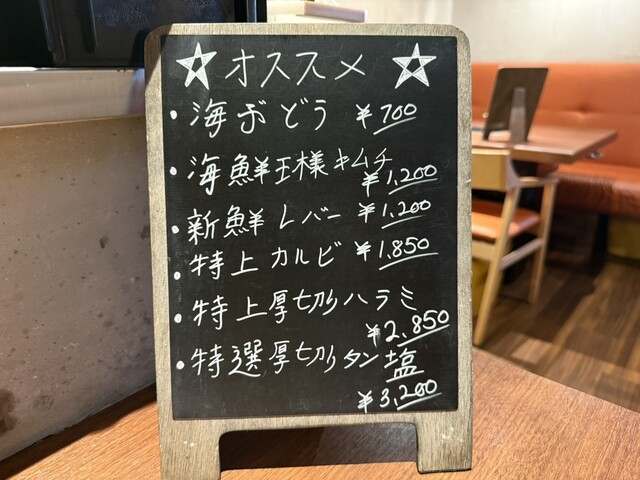 ☆オススメ☆
・海ぶどう ¥700
・海鮮王様キムチ
¥1,200
・新鮮レバー ¥1,200
・特上カルビ ¥1,850
・特上厚切りハラミ
¥2,850
・特選厚切りタン塩
¥3,200